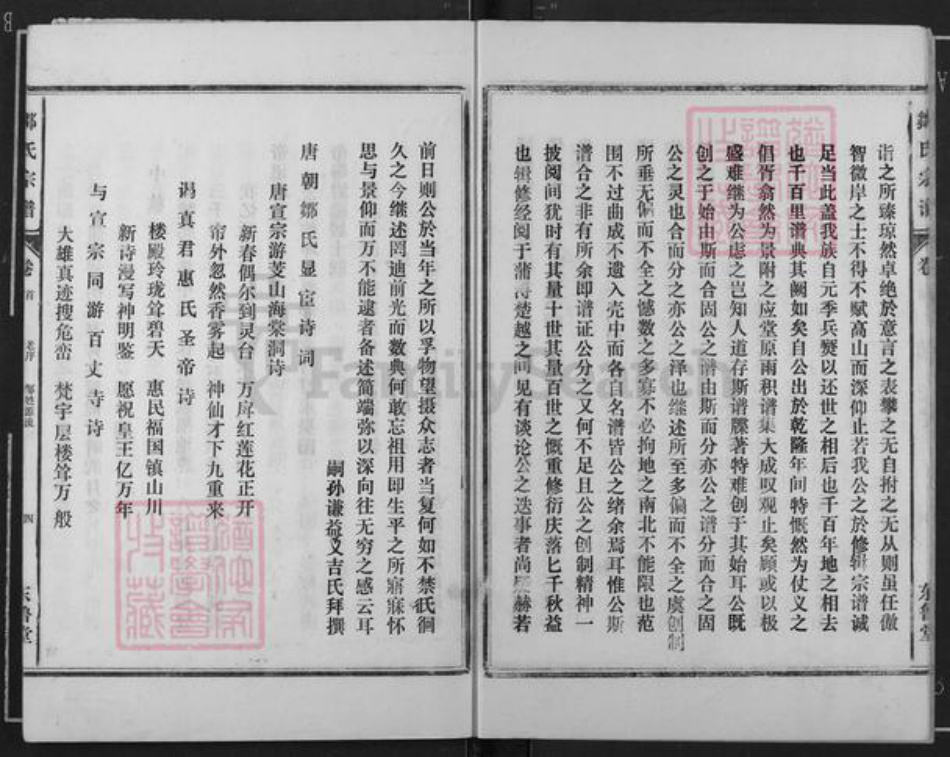 诣之所臻琼然卓绝於意言之表攀之无自拊之无从则虽任傲
智微岸之士不得不赋高山而深仰止若我公之於修辑宗谱诚
足当此盖我族自元季兵燹以还世之相后也千百年地之相去
也千百里谱典其阙如矣自公出於乾隆年间特慨然为仗义之
倡胥翕然为景附之应堂原雨积谱集大成叹观止矣顾或以极
盛难继为公虑之岂知人道存斯谱牒著特难创于其始耳公既
创之于始由斯而合固公之谱由斯而分亦公之谱分而合之固
公之灵也合而分之亦公之泽也继述所至多偏而不全之虞创制
所垂无偏而不全之憾数之多寡不必拘地之南北不能限也范
围不过曲成不遗入壳中而各自名谱皆公之绪余焉耳惟公斯
谱合之非有所余即谱证公分之又何不足且公之创制精神一
披阅间犹时有其量十世其量百世之慨重修衍庆落匕千秋益
也辑修经阅于蒲浔楚越之间见有谈论公之迭事者尚赫若
前日则公於当年之所以孚物望摄众志者当复何如不禁氏徊
久之今继述罔迪前光而数典何敢忘祖用即生平之所寤寐怀
思与景仰而万不能逮者备述简端弥以深向往无穷之感云耳
嗣孙谦益又吉氏拜撰
唐朝鄒氏显宦诗词
唐宣宗游芰山海棠洞诗
新春偶尔到灵台 万岸红莲花正开
帘外忽然香雾起 神仙才下九重来
谒真君惠氏圣帝诗
楼殿玲珑耸碧天 惠民福国镇山川
新诗漫写神明鉴 愿祝皇王亿万年
与宣宗同游百丈寺诗
大雄真迹搜危峦 梵宇层楼耸万般
鄒氏宗谱
卷首
老序
邹姓源流
四
东鲁堂
鄒氏宗谱
卷
东鲁堂
FamilySearch